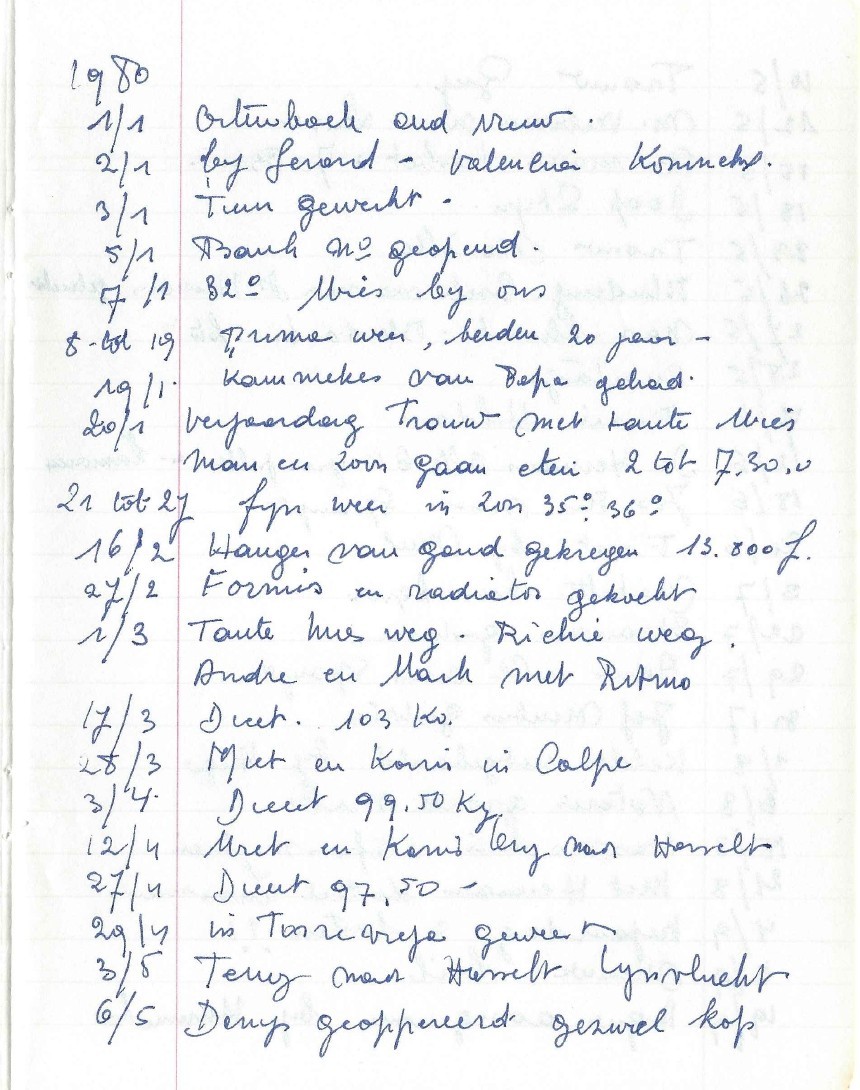 1980
1/1 oud nieuw.
2/1 by Gerard - Valencia
3/1 Tuin gewerkt -
5/1 Bank No geopend.
7/1 32° Mies by ons
8 tot 19 Prima weer, beiden 20 jaar -
19/1. van Bepa gehad.
20/1 Verjaardag Trouw met tante Mies
man en zoon gaan eten 2 tot 7.30.u
21 tot 27 fyn weer in zon 35° 36°
16/2 Hanger van goud gekregen 13.800 f.
27/2 Fornuis en radiator gekocht
1/3 Tante Mies weg - Richie weg.
Andre en Mark met Ritmo
17/3 Dieet. 103 Ko.
28/3 Miet en Konis in Calpe
3/4. Dieet 99.50 Kg.
12/4 Miet en Konis terug naar Hasselt
27/4 Dieet 97.50 -
29/4 in Torrevieja geweest
3/5 Terug naar Hasselt Lynvlucht
6/5 Denys geoppereerd gezwel kop